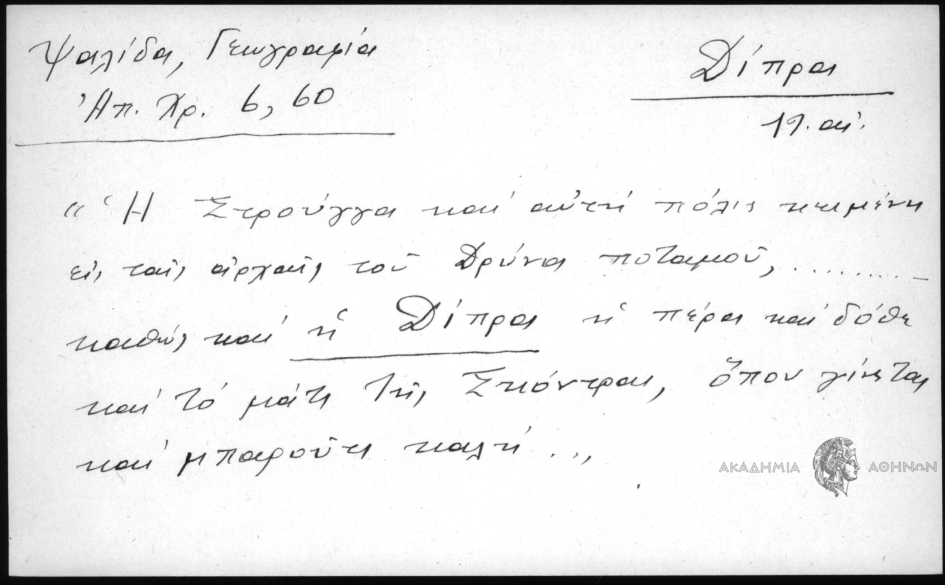 Ψαλίδα, Γεωγραφία
Ἠπ. Χρ. 6, 60
Δίπρα
19. αἰ.
"Ἡ Στρούγγα καὶ αὐτὴ πόλις κειμένη
εἰς ταῖς ἀρχαῖς τοῦ Δρύνα ποταμοῦ, ..........
καθὼς καὶ ἡ Δίπρα ἡ πέρα καὶ δόθε
καὶ τὸ μάτι τῆς Σκόντρας, ὅπου γίνεται
καὶ μπαρούτι καλή...,
ΑΚΑΔΗΜΙΑ ΑΘΗΝΩΝ